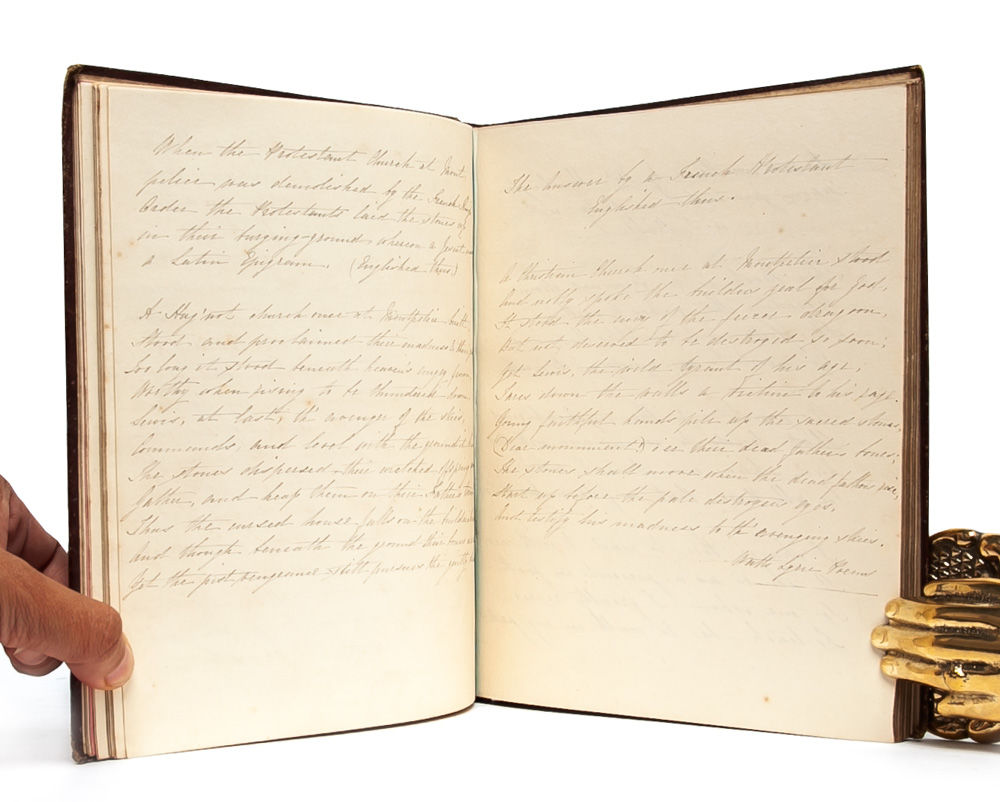 When the Protestant Church at Mont
pelier was demolished by the French King's
Order the Protestants laid the stones up
in their burying-ground whereon a Jesuit
a Latin Epigram. (Englished thus)
A Hug'not church once at Montpelier built
Stood and proclaimed their madness &
Too long it stood beneath heaven's angry frown
Worthy when rising to be thundered down
Lewis, at last, th' avenger of the skies,
Commands, and level with the ground it
The stones dispersed their wretched offspring
Gather, and heap them on their Father's
Thus the cursed house falls on the builder's
And though beneath the ground their bones
Yet the just vengeance still pursues the guilty
The Answer by a French Protestant
Englished thus.
A Christian Church once at Montpelier stood
And nobly spoke the builders zeal for God,
It stood the of the fierce dragoon,
But not deserved to be destroyed so soon;
Yet Lewis, the wild tyrant of his age,
Tears down the walls a Victim to his rage.
Young faithful hands pile up the sacred stones,
(Dear monument!) o'er their dead fathers bones;
The stones shall move when the dead fathers rise,
Start up before the pale destroyers eyes,
And testify his madness to th' avenging skies.
Watts Lyric Poems